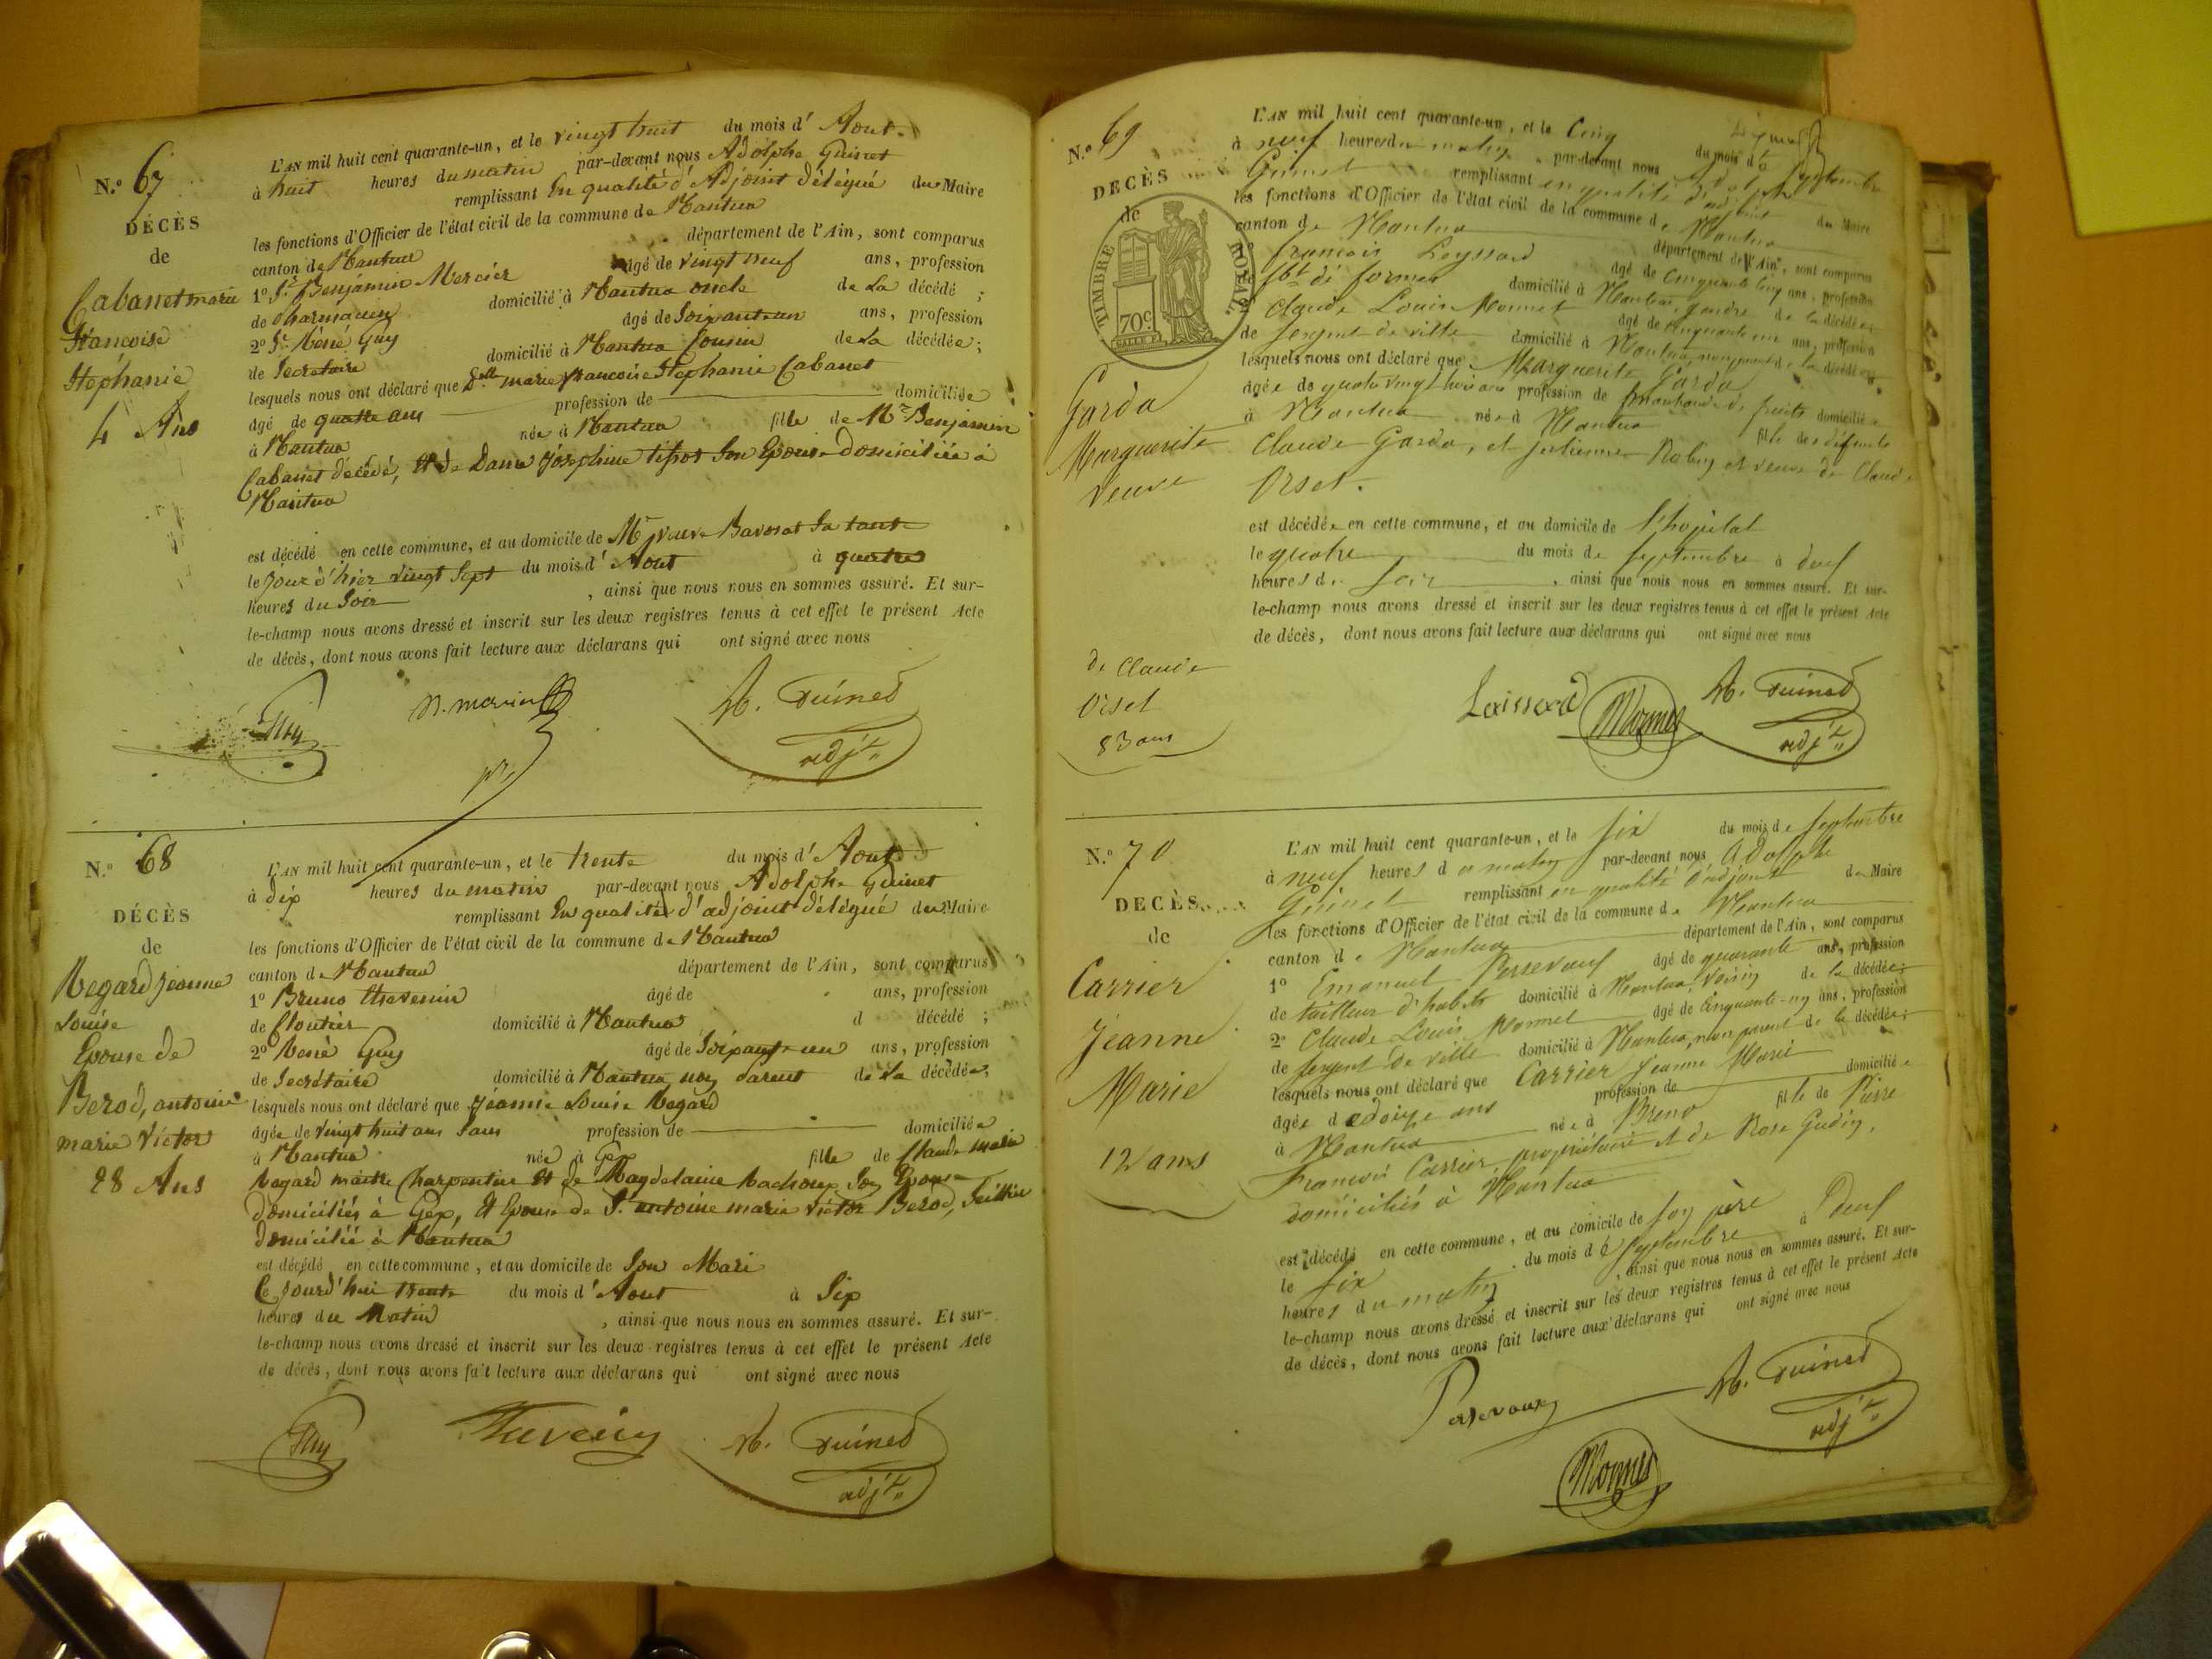 N.° 67
DÉCÈS
de
Cabanet marie
francoise
Stéphanie
4 Ans
L'AN mil huit cent quarante-un, et le vingt huit du mois d' Aout
à huit heures du matin par-devant nous Adolphe Guinet
remplissant En qualité d'Adjoint délégué du Maire
les fonctions d'Officier de l'état civil de la commune de Nantua
canton de Nantua département de l'Ain, sont comparus
1° Sr. Benjamin Mercier âgé de vingt neuf ans, profession
de pharmacien domicilié à Nantua oncle de La décédé ;
2° Sr. Réné Guy âgé de Soixante un ans, profession
de Secrétaire domicilié à Nantua Cousin de La décédée ;
lesquels nous ont déclaré que Delle marie francoise Stéphanie Cabanet
âgé de quatre ans profession de domiciliée
à Nantua née à Nantua fille de Mr Benjamin
Cabanet décédé, Et de Dame Joséphine Son Epouse domiciliée à
Nantua
est décédé en cette commune, et au domicile de Me veuve Bavozat Sa tante
le Jour d'hier vingt Sept du mois d' Aout à quatre
heures du Soir , ainsi que nous nous en sommes assuré. Et sur-
le-champ nous avons dressé et inscrit sur les deux registres tenus à cet effet le présent Acte
de décès, dont nous avons fait lecture aux déclarans qui ont signé avec nous
Guy
A. Guinet
adjt.
N.° 68
DÉCÈS
de
Regard Jeanne
Louise
Epouse de
Berod, antoine
marie Victor
28 Ans
L'AN mil huit cent quarante-un, et le trente du mois d' Aout
à dix heures du matin par-devant nous Adolphe Guinet
remplissant En qualité d'adjoint délégué du Maire
les fonctions d'Officier de l'état civil de la commune de Nantua
canton de Nantua département de l'Ain, sont comparus
1° Bruno thevenin âgé de ans, profession
de Cloutier domicilié à Nantua d décédé ;
2° Réné Guy âgé de Soixante un ans, profession
de Secrétaire domicilié à Nantua non parent de La décédée ;
lesquels nous ont déclaré que Jeanne Louise Regard
âgée de vingt huit ans Sans profession de domiciliée
à Nantua née à Gex fille de Claude marie
Regard maitre Charpentier Et de Magdelaine Rachoux Son Epouse
domiciliés à Gex, Et Epouse de Sr. antoine marie Victor Berod, Sellier
domicilié à Nantua
est décédé en cette commune, et au domicile de Son Mari
Ce Jourd'hui trente du mois d' Aout à Six
heures du Matin , ainsi que nous nous en sommes assuré. Et sur-
le-champ nous avons dressé et inscrit sur les deux registres tenus à cet effet le présent Acte
de décès, dont nous avons fait lecture aux déclarans qui ont signé avec nous
Guy
Thevenin
A. Guinet
adjt.
N.° 69
DÉCÈS
de
TIMBRE ROYAL.
70c.
Garda
Marguerite
veuve
de Claude
Orset
83 ans
L'AN mil huit cent quarante-un, et le Cinq du mois de Septembre
à neuf heures du matin par-devant nous Adolphe
Guinet remplissant en qualité d'adjoint du Maire
les fonctions d'Officier de l'état civil de la commune de Nantua
canton de Nantua département de l'Ain, sont comparus
francois Leyssard âgé de cinquante cinq ans, profession
domicilié à Nantua, gendre de la décédée
Claude Louis Monnet âgé de cinquante un ans, profession
de sergent de ville domicilié à Nantua, non parent de la décédée
lesquels nous ont déclaré que Marguerite Garda
âgée de quatre vingt trois ans profession de marchande de fruits domiciliée
à Nantua née à Nantua fille des défunts
Claude Garda, et et veuve de Claude
Orset.
est décédée en cette commune, et au domicile de l'hopital
le quatre du mois de Septembre à deux
heures du Soir , ainsi que nous nous en sommes assuré. Et sur-
le-champ nous avons dressé et inscrit sur les deux registres tenus à cet effet le présent Acte
de décès, dont nous avons fait lecture aux déclarans qui ont signé avec nous
Laissard
Monnet
A. Guinet
adjt.
N.° 70
DÉCÈS
de
Carrier
Jeanne
Marie
12 ans
L'AN mil huit cent quarante-un, et le Six du mois de Septembre
à neuf heures du matin par-devant nous Adolphe
Guinet remplissant en qualité d'adjoint du Maire
les fonctions d'Officier de l'état civil de la commune de Nantua
canton de Nantua département de l'Ain, sont comparus
1° Emanuel Persevaux âgé de quarante ans, profession
de tailleur d'habits domicilié à Nantua, Voisin de la décédée ;
2° Claude Louis Monnet âgé de Cinquante-un ans, profession
de sergent de ville domicilié à Nantua, non parent de la décédée ;
lesquels nous ont déclaré que Carrier Jeanne Marie
âgée de douze ans profession de domiciliée
à Nantua née à Breno fille de Pierre
Francois Carrier propriétaire et de Rose Gudin,
domiciliés à Nantua
est décédé en cette commune, et au domicile de Son père
le Six du mois de Septembre à deux
heures du matin , ainsi que nous nous en sommes assuré. Et sur-
le-champ nous avons dressé et inscrit sur les deux registres tenus à cet effet le présent Acte
de décès, dont nous avons fait lecture aux déclarans qui ont signé avec nous
Persevaux
A. Guinet
adjt.
Monnet